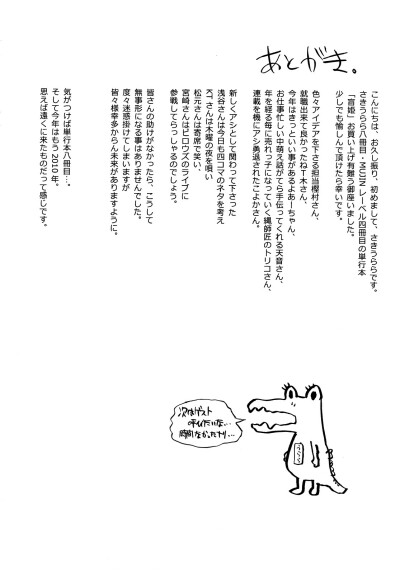 あとがき。
こんにちは、お久し振り、初めまして、さきうららです。
さきうらら八冊目・MUJINレーベル四冊目の単行本
「盲姫」お買い上げ有難う御座いました。
少しでも愉しんで頂けたら幸いです。
色々アイデアを下さる担当樫村さん、
就職出来て良かったねT木さん、
今年はきっといい事があるよあーちゃん、
お仕事忙しい中萌え話がてら手伝ってくれる天音さん、
年を経る毎に売れっ子になっていく縄師匠のトリコさん、
連載を機にアシ勇退されたこよかさん。
新しくアシとして関わって下さった
浅谷さんは今日も四コマのネタを考え
K.Tさんは木曜の夜を唄い
松元さんは寄席で笑い、
宮崎さんはピロウズのライブに
参戦してらっしゃるのでしょう。
皆さんの助けがなかったら、こうして
無事形になる事はありませんでした。
度々迷惑掛けてしまいますが
皆々様幸多からん未来がありますように。
気がつけば単行本八冊目…。
そして今年はもう2010年。
思えば遠くに来たものだって感じです。
次はゲスト
呼びたいな…
時間なかったナリ…